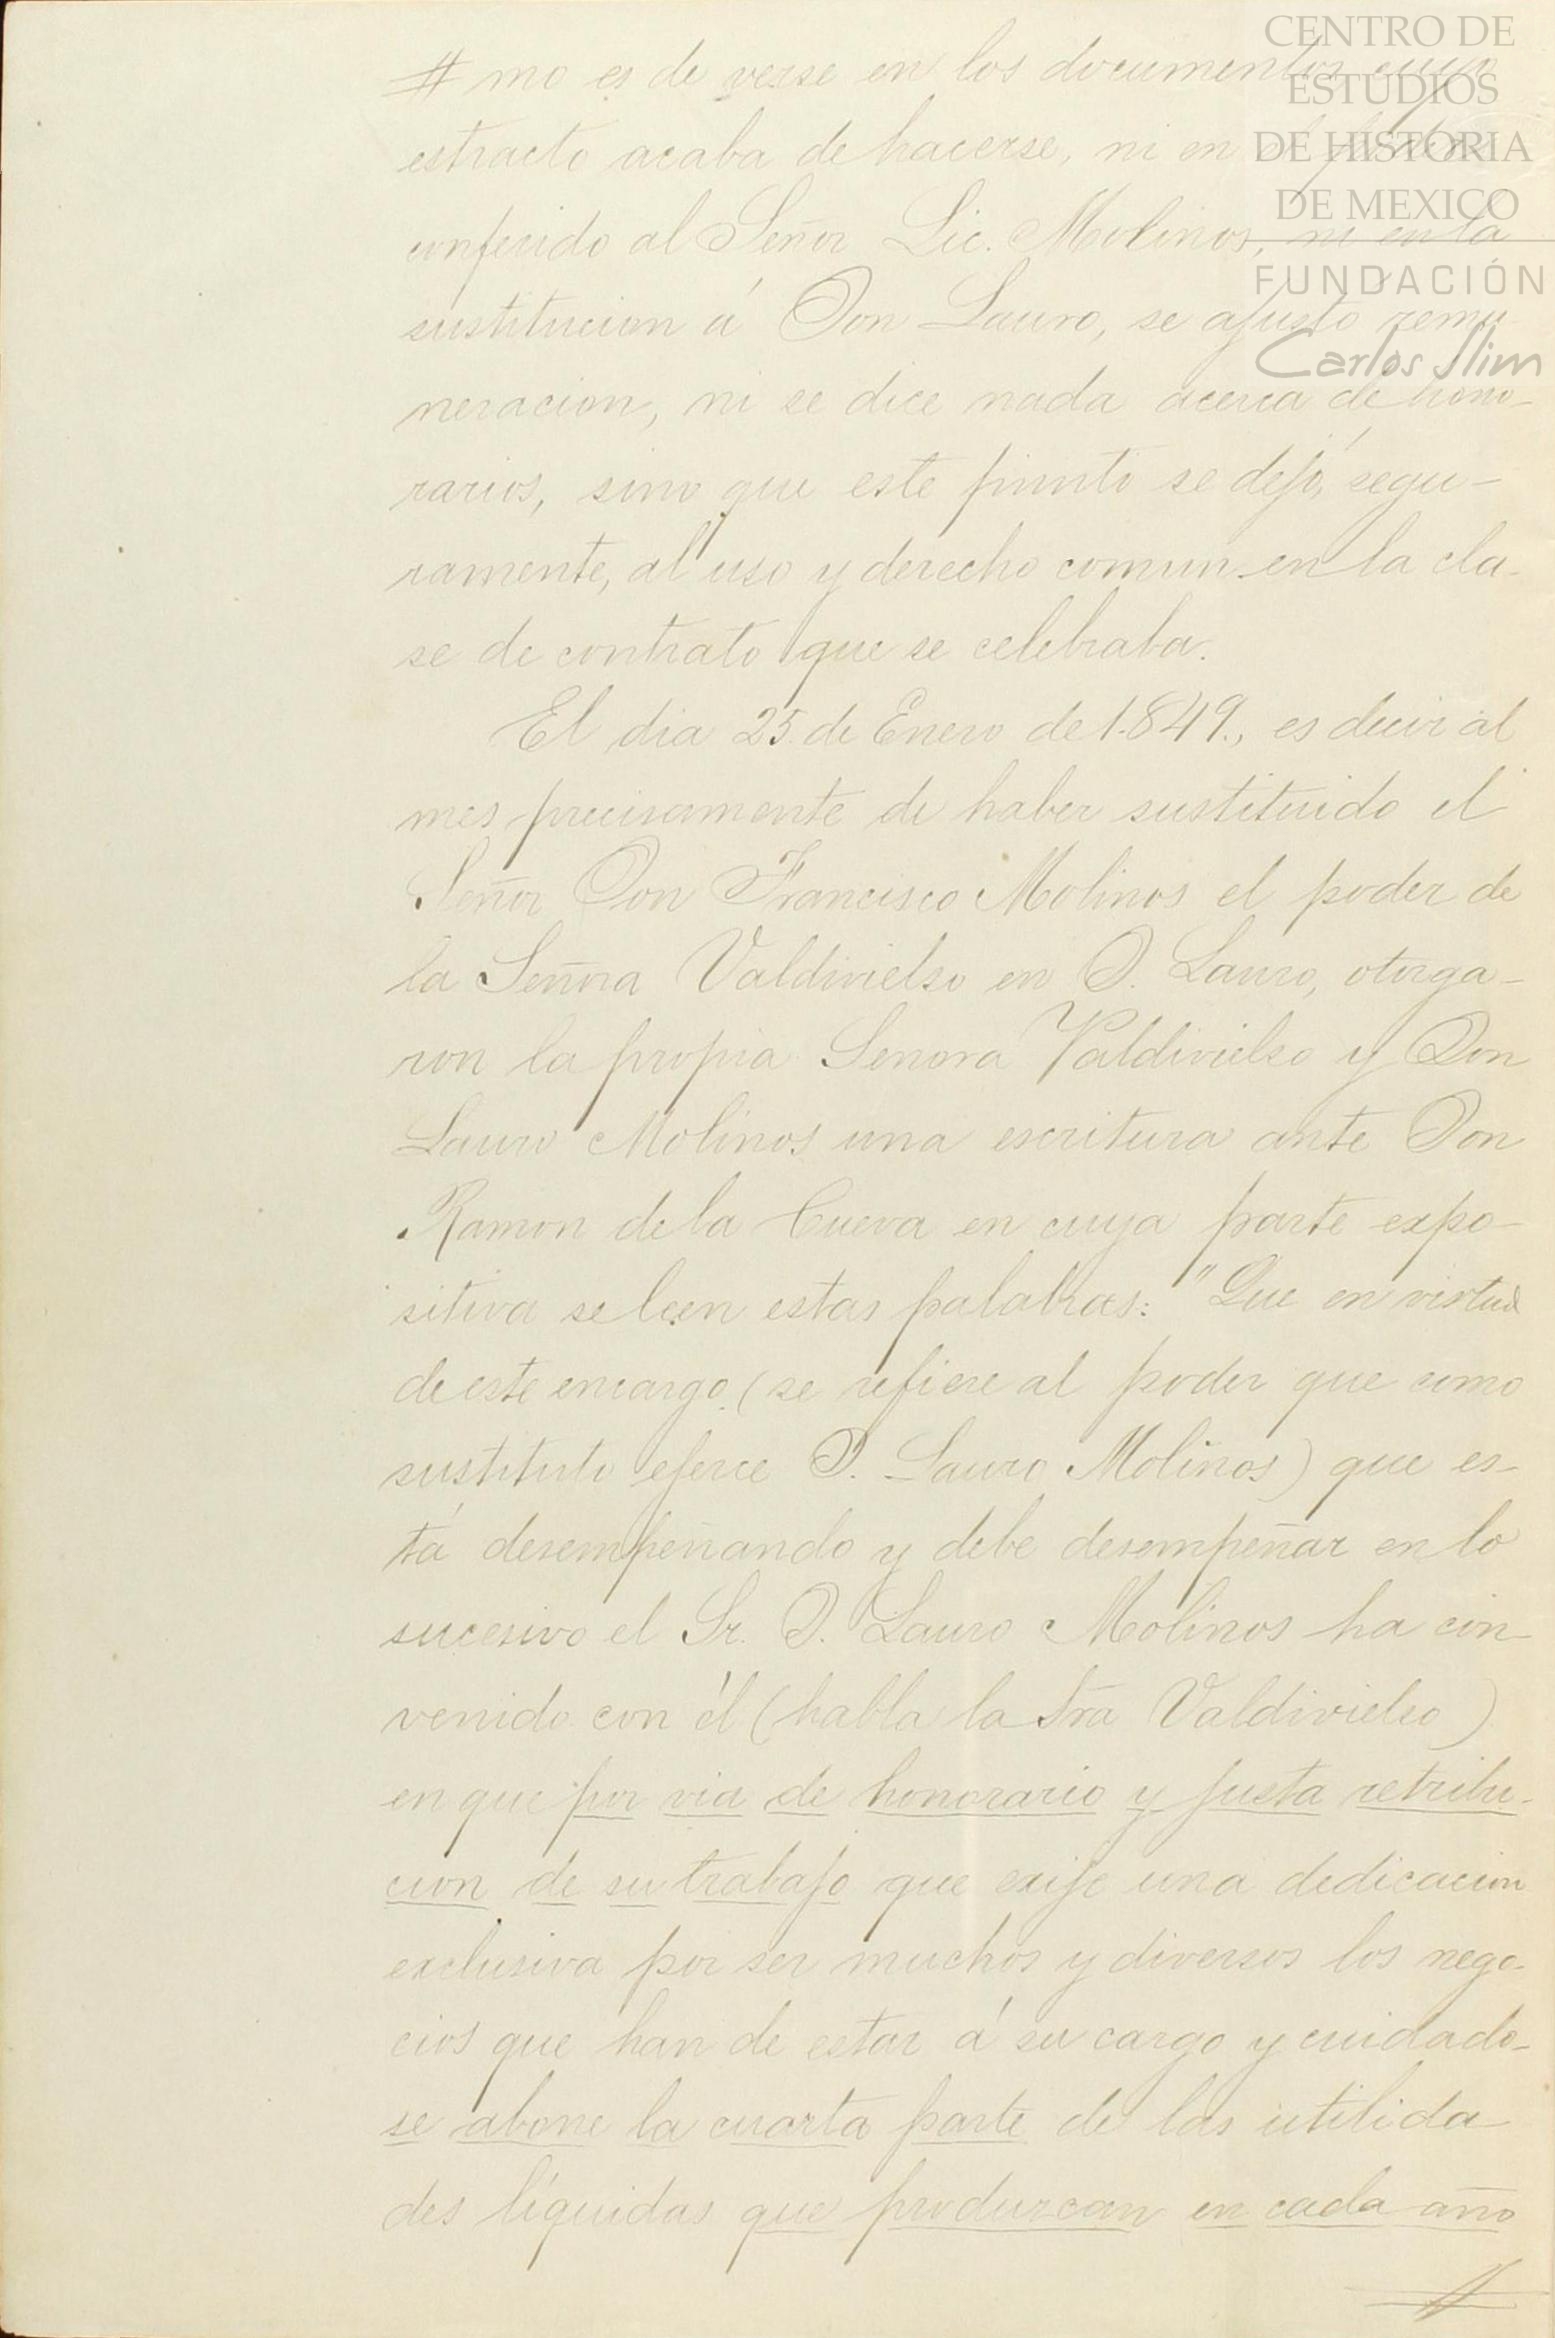 mo es de verse en los documentos cuyo
estracto acaba de hacerse, ni en el poder
conferido al Señor Lic. Molinos, ni en la
sustitucion á Don Lauro, se ajustó remu
neracion, ni se dice nada acerca de hono-
rarios, sino que este punto se dejó, segu-
ramente, al uso y derecho comun en la cla-
se de contrato que se celebraba.
El dia 25 de Enero de 1.849., es decir al
mes precisamente de haber sustituido el
Señor Don Francisco Molinos el poder de
la Señora Valdivielso en D. Lauro, otorga-
ron la propia Senora Valdivielso y Don
Lauro Molinos una escritura ante Don
Ramon de la Cueva en cuya parte expo-
sitiva se leen estas palabras: "Que en virtud
de este encargo (se refiere al poder que como
sustituto ejerce D. Lauro Molinos) que es-
tá desempeñando y debe desempeñar en lo
sucesivo el Sr. D. Lauro Molinos ha con-
venido con él (habla la Sra Valdivielso)
en que por via de honorario y justa retribu-
cion de su trabajo que exije una dedicacion
exclusiva por ser muchos y diversos los nego-
cios que han de estar á su cargo y cuidado-
se abone la cuarta parte de las utilida
des líquidas que produzcan en cada año
CENTRO DE
ESTUDIOS
DE HISTORIA
DE MEXICO
FUNDACIÓN
Carlos Slim